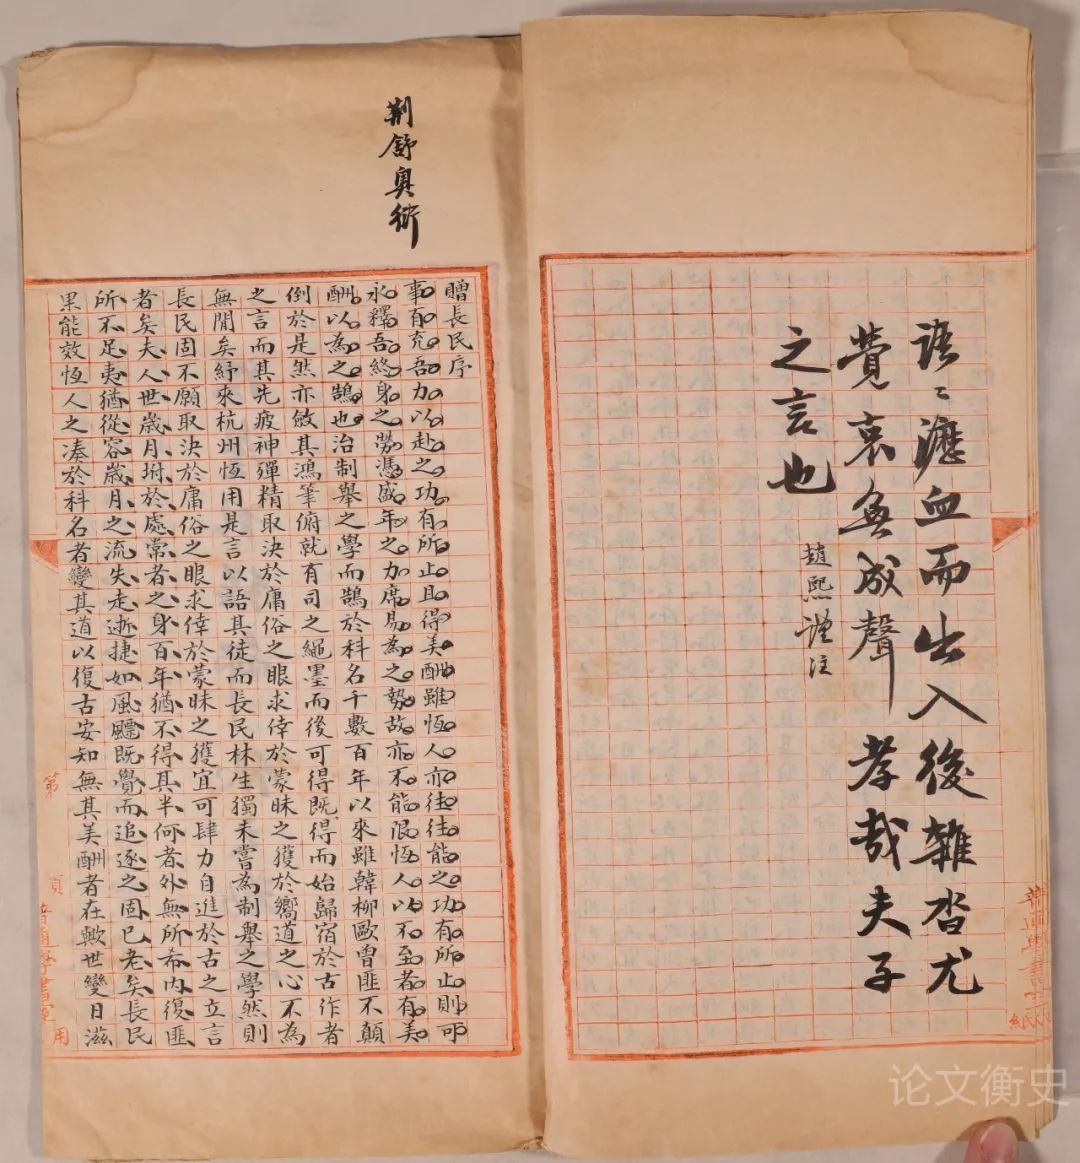 語〻瀝血而出入後雜沓尤
覺哀無成聲孝哉夫子
之言也
趙熙謹注
荆舒奥衍
贈長民序
事有充吾力以赴之功有所止且得美酬雖恆人亦往往能之功有所止則可
永釋吾終身之勞憑盛年之加席易為之勢故亦不能限恆人以不至者有美
酬以為之鵠也治制舉之學而鵠於科名千數百年以來雖韓柳歐曾匪不顛
倒於是然亦斂其鴻筆俯就有司之繩墨而後可得既得而始歸宿於古作者
之言而其先疲神殫精取決於庸俗之眼求倖於蒙昧之獲於嚮道之心不為
無閒矣紓來杭州恆用是言以語其徒而長民林生獨未嘗為制舉之學然則
長民固不願取決於庸俗之眼求倖於蒙昧之獲宜可肆力自進於古之立言
者矣夫人世歲月坿於處常者之身百年猶不得其半何者外無所希內復匪
所不足夷猶從容歲月之流失走逝捷如風飄既覺而追逐之固已老矣長民
果能效恆人之湊於科名者變其道以復古安知無其美酬者在歟世變日滋
第 頁
普通學書室 用
紙
论文衡史